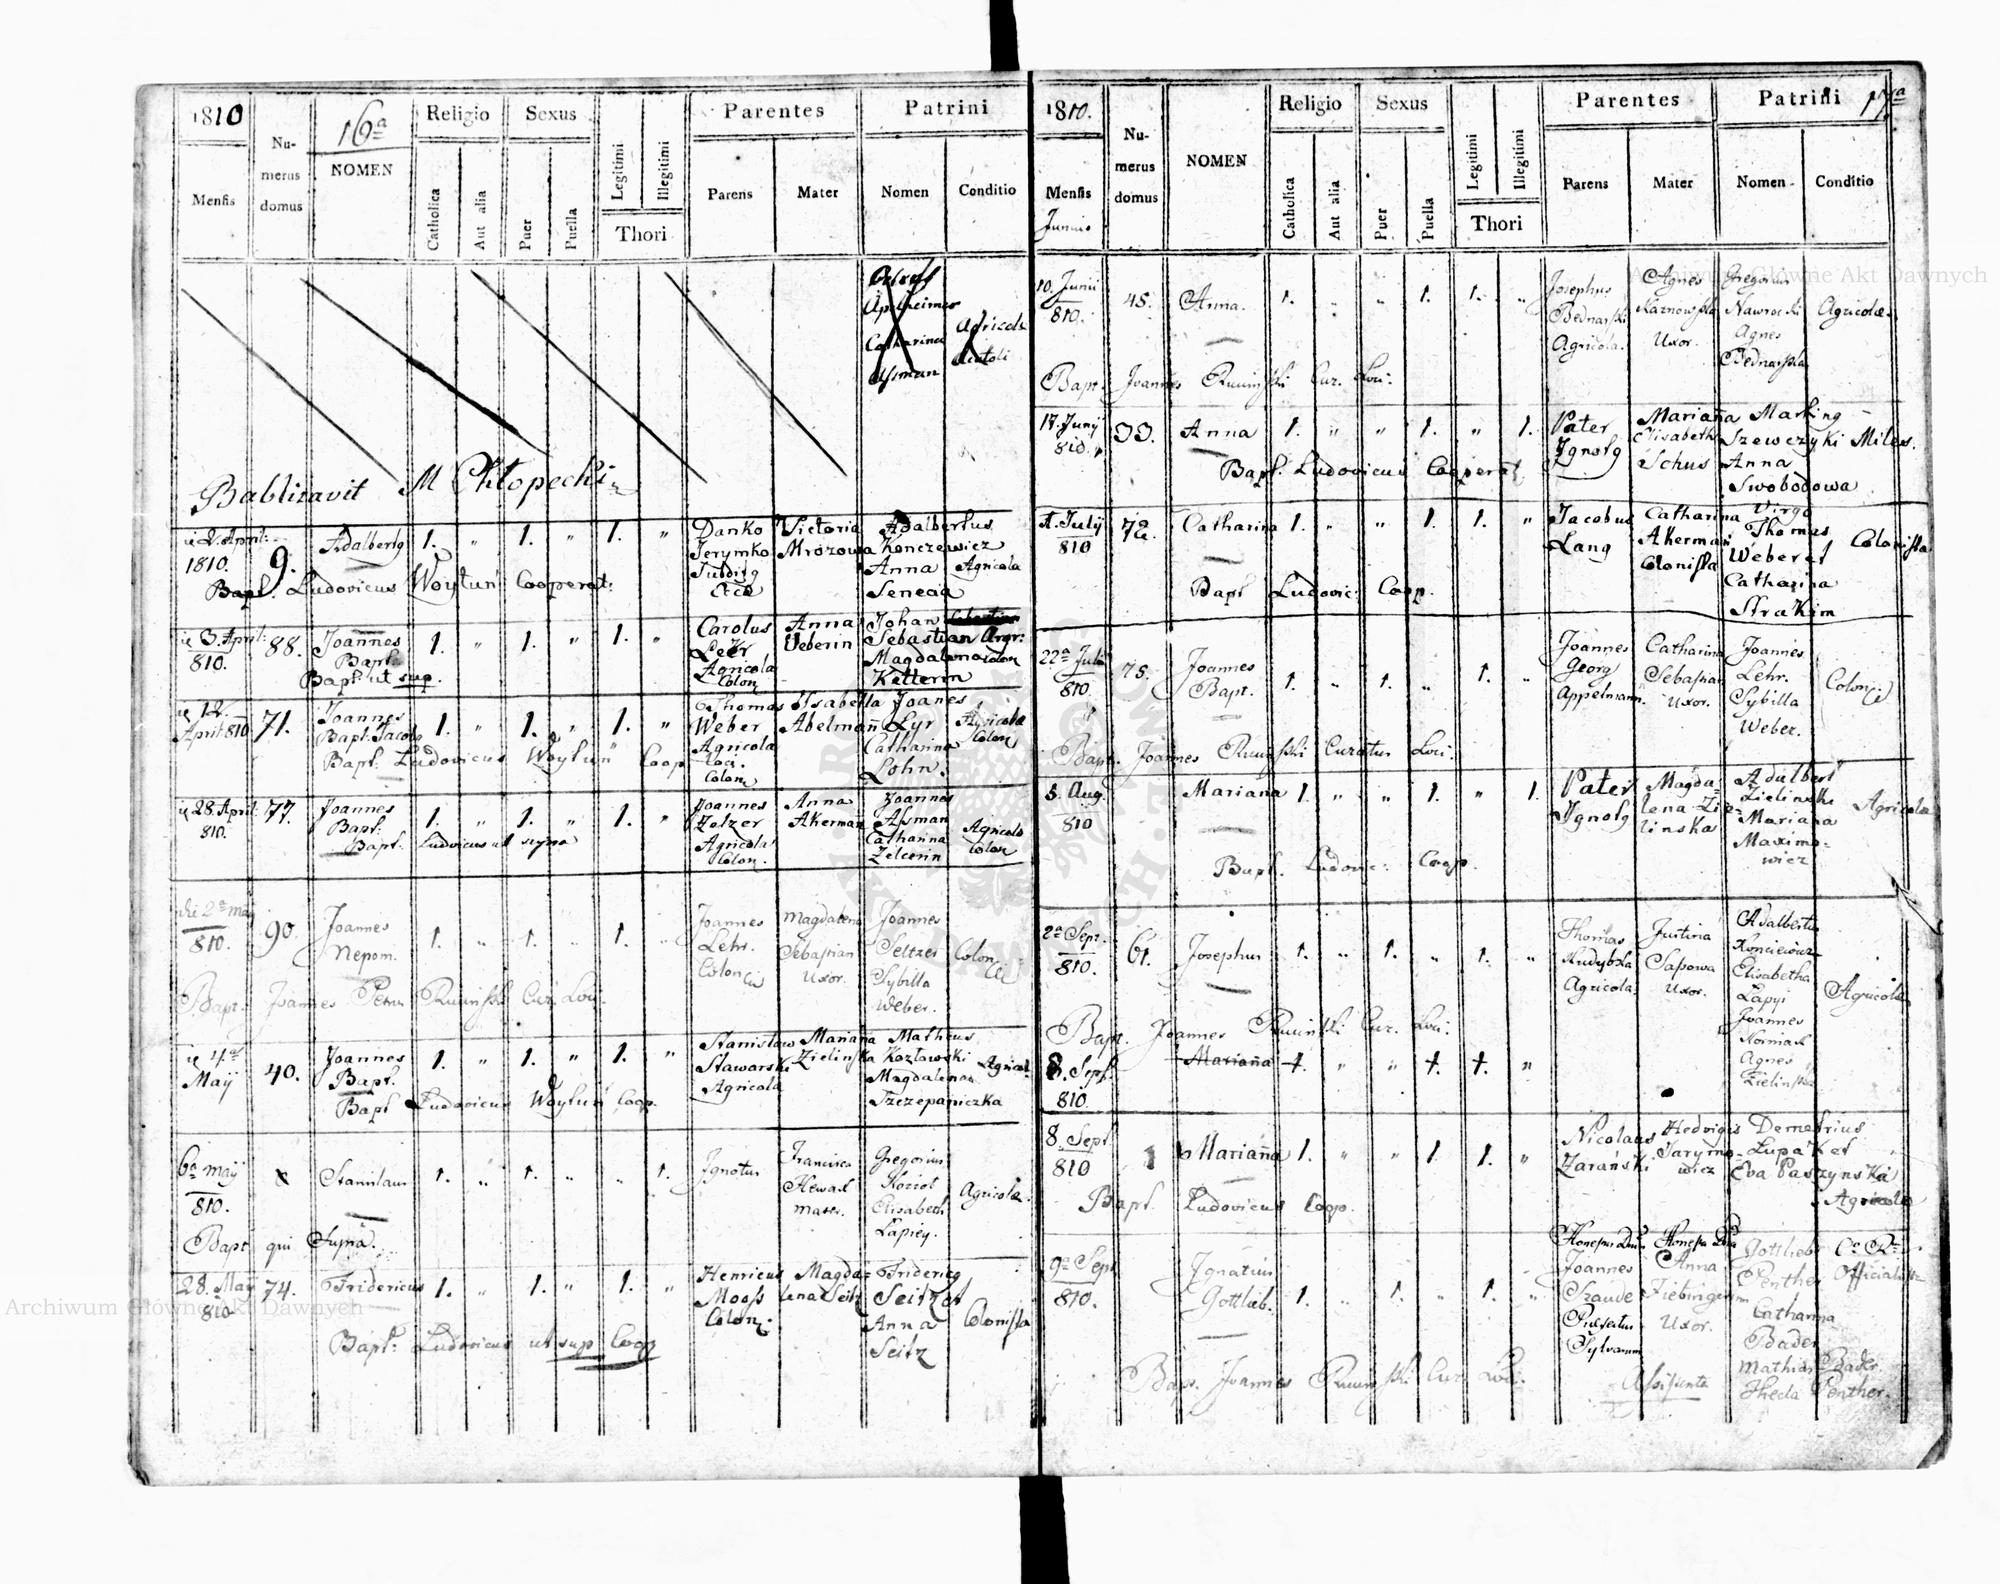 1810
16ª
Numerus domus
NOMEN
Religio
Sexus
Legitimi
Illegitimi
Parentes
Patrini
Mensis
Catholica
Aut alia
Puer
Puella
Thori
Parens
Mater
Nomen
Conditio
Catharina
Agricola
Bablizavit M Chłopecki
April:
1810.
9.
Adalbertg
1. " 1. " 1. "
Danko
Victoria
Adalbertus
Jerymko
Mrozowa
Konczewicz
Anna
Agricola
Senecia
Bapt. Ludovicus Woytuń Cooperat:
3. April:
810.
88.
Joannes
Bapt.
1. " 1. " 1. "
Carolus
Anna
Johan
Leer
Weberin
Sebastian
Agricola
Magdalena
Colon
Colon
Ketterin
Bapt. ut sup.
12.
April 810
71.
Joannes
Bapt. Jacob
1. " 1. " 1. "
Thomas
Isabella
Joanes
Weber
Abelmañ
Lyr
Agricola
Colon
Agricola
Catharina
loci.
Lohn.
Colon
Bapt. Ludovicus Woytuń Coop
28. April
810.
77.
Joannes
Bapt.
1. " 1. " 1. "
Joannes
Anna
Joannes
Zelzer
Akerman
Assman
Agricola
Catharina
Agricola
Colon.
Zelcerin
Colon
Bapt. Ludovicus ut supra
die 2ª may
810.
90.
Joannes
Nepom.
1. " 1. " 1. "
Joannes
Magdalena
Joannes
Lehr.
Sebastian
Seltzer
Colon
Uxor.
Sybilla
Weber.
Bapt. Joannes Petrus Ruminski Cur. Loci.
4ª
Maÿ
40.
Joannes
Bapt.
1. " 1. " 1. "
Stanislaw
Mariana
Matheus
Stawarski
Zielinska
Kozlowski
Agricol.
Agricola
Magdalena
Szczepaniczka
Bapt Ludovicus Woytuń Coop.
6ª maÿ
810.
Stanislaus
1. " 1. " " 1.
Ignotus
Francisca
Gregorius
Koziol
mater.
Elisabeth
Agricolæ.
Lapiey.
Bapt qui Supra.
28. May
810
74.
Fridericus
1. " 1. " 1. "
Henricus
Magdalena Seitz
Fridericg
Mooss
Seitz et
Colon:
Anna
Colonista
Seitz
Bapt: Ludovicus ut sup Coop
1810.
17ª
Numerus domus
NOMEN
Religio
Sexus
Legitimi
Illegitimi
Parentes
Patrini
Mensis
Junius
Catholica
Aut alia
Puer
Puella
Thori
Parens
Mater
Nomen
Conditio
10. Junii
810.
45.
Anna.
1. " " 1. 1. "
Josephus
Agnes
Gregorius
Bednarski
Karnowska
Nawrocki
Agricolæ.
Agricola.
Uxor.
Agnes
Bednarska
Bapt. Joannes Ruminski Cur. Loci.
17. Junÿ
810.
33.
Anna
1. " " 1. " 1.
Pater
Mariaña
Ignotg
Elisabeth
Szewczyki
Miles.
Schus
Anna
Swobodowa
Virgo
Bapt. Ludovicus Cooperat
July
810
72.
Catharina
1. " " 1. 1. "
Jacobus
Catharina
Thomas
Lang
Akerman
Weber et
Colonista
Colonista
Catharina
Strakim
Bapt Ludovic: Coop.
22ª Julii
810.
75.
Joannes
Bapt.
1. " 1. " 1. "
Joannes
Catharina
Joannes
Georg
Sebastian
Lehr.
Appelmann.
Uxor.
Sybilla
Weber.
Bapt. Joannes Ruminski Curatus Loci.
5. Aug.
810
Mariana
1. " " 1. " 1.
Pater
Magdalena Zielinska
Adalbert
Ignotg
Zielinski
Agricola
Mariana
Maximowicz
Bapt. Ludovic: Coop.
2ª Sept.
810.
61.
Josephus
1. " 1. " 1. "
Thomas
Justina
Adalbertus
Sapowa
Konciewicz
Agricola.
Uxor.
Elisabetha
Lapyi
Agricolæ
Joannes
Agnes
Zielinska
Bapt. Joannes Ruminski Cur. Loci.
8. Sept.
810.
Mariana
8. Sept.
810
Mariaña
1. " " 1. 1. "
Nicolaus
Hedvigis
Demetrius
Zarański
Łupak et
Eva Paszynska
Agricola
Bapt. Ludovicus Coop.
9ª Sept
810.
Ignatius
Gottlieb.
1. " 1. " 1. "
Joannes
Anna
Gottlieb
Szaude
Fiebingerin
Penther
Uxor.
Catharina
Bader
Mathias Bader.
Assistente
Theda Penther.
Bapt. Joannes Ruminski Cur. Loci.
Archiwum Główne Akt Dawnych
Archiwum Główne Akt Dawnych